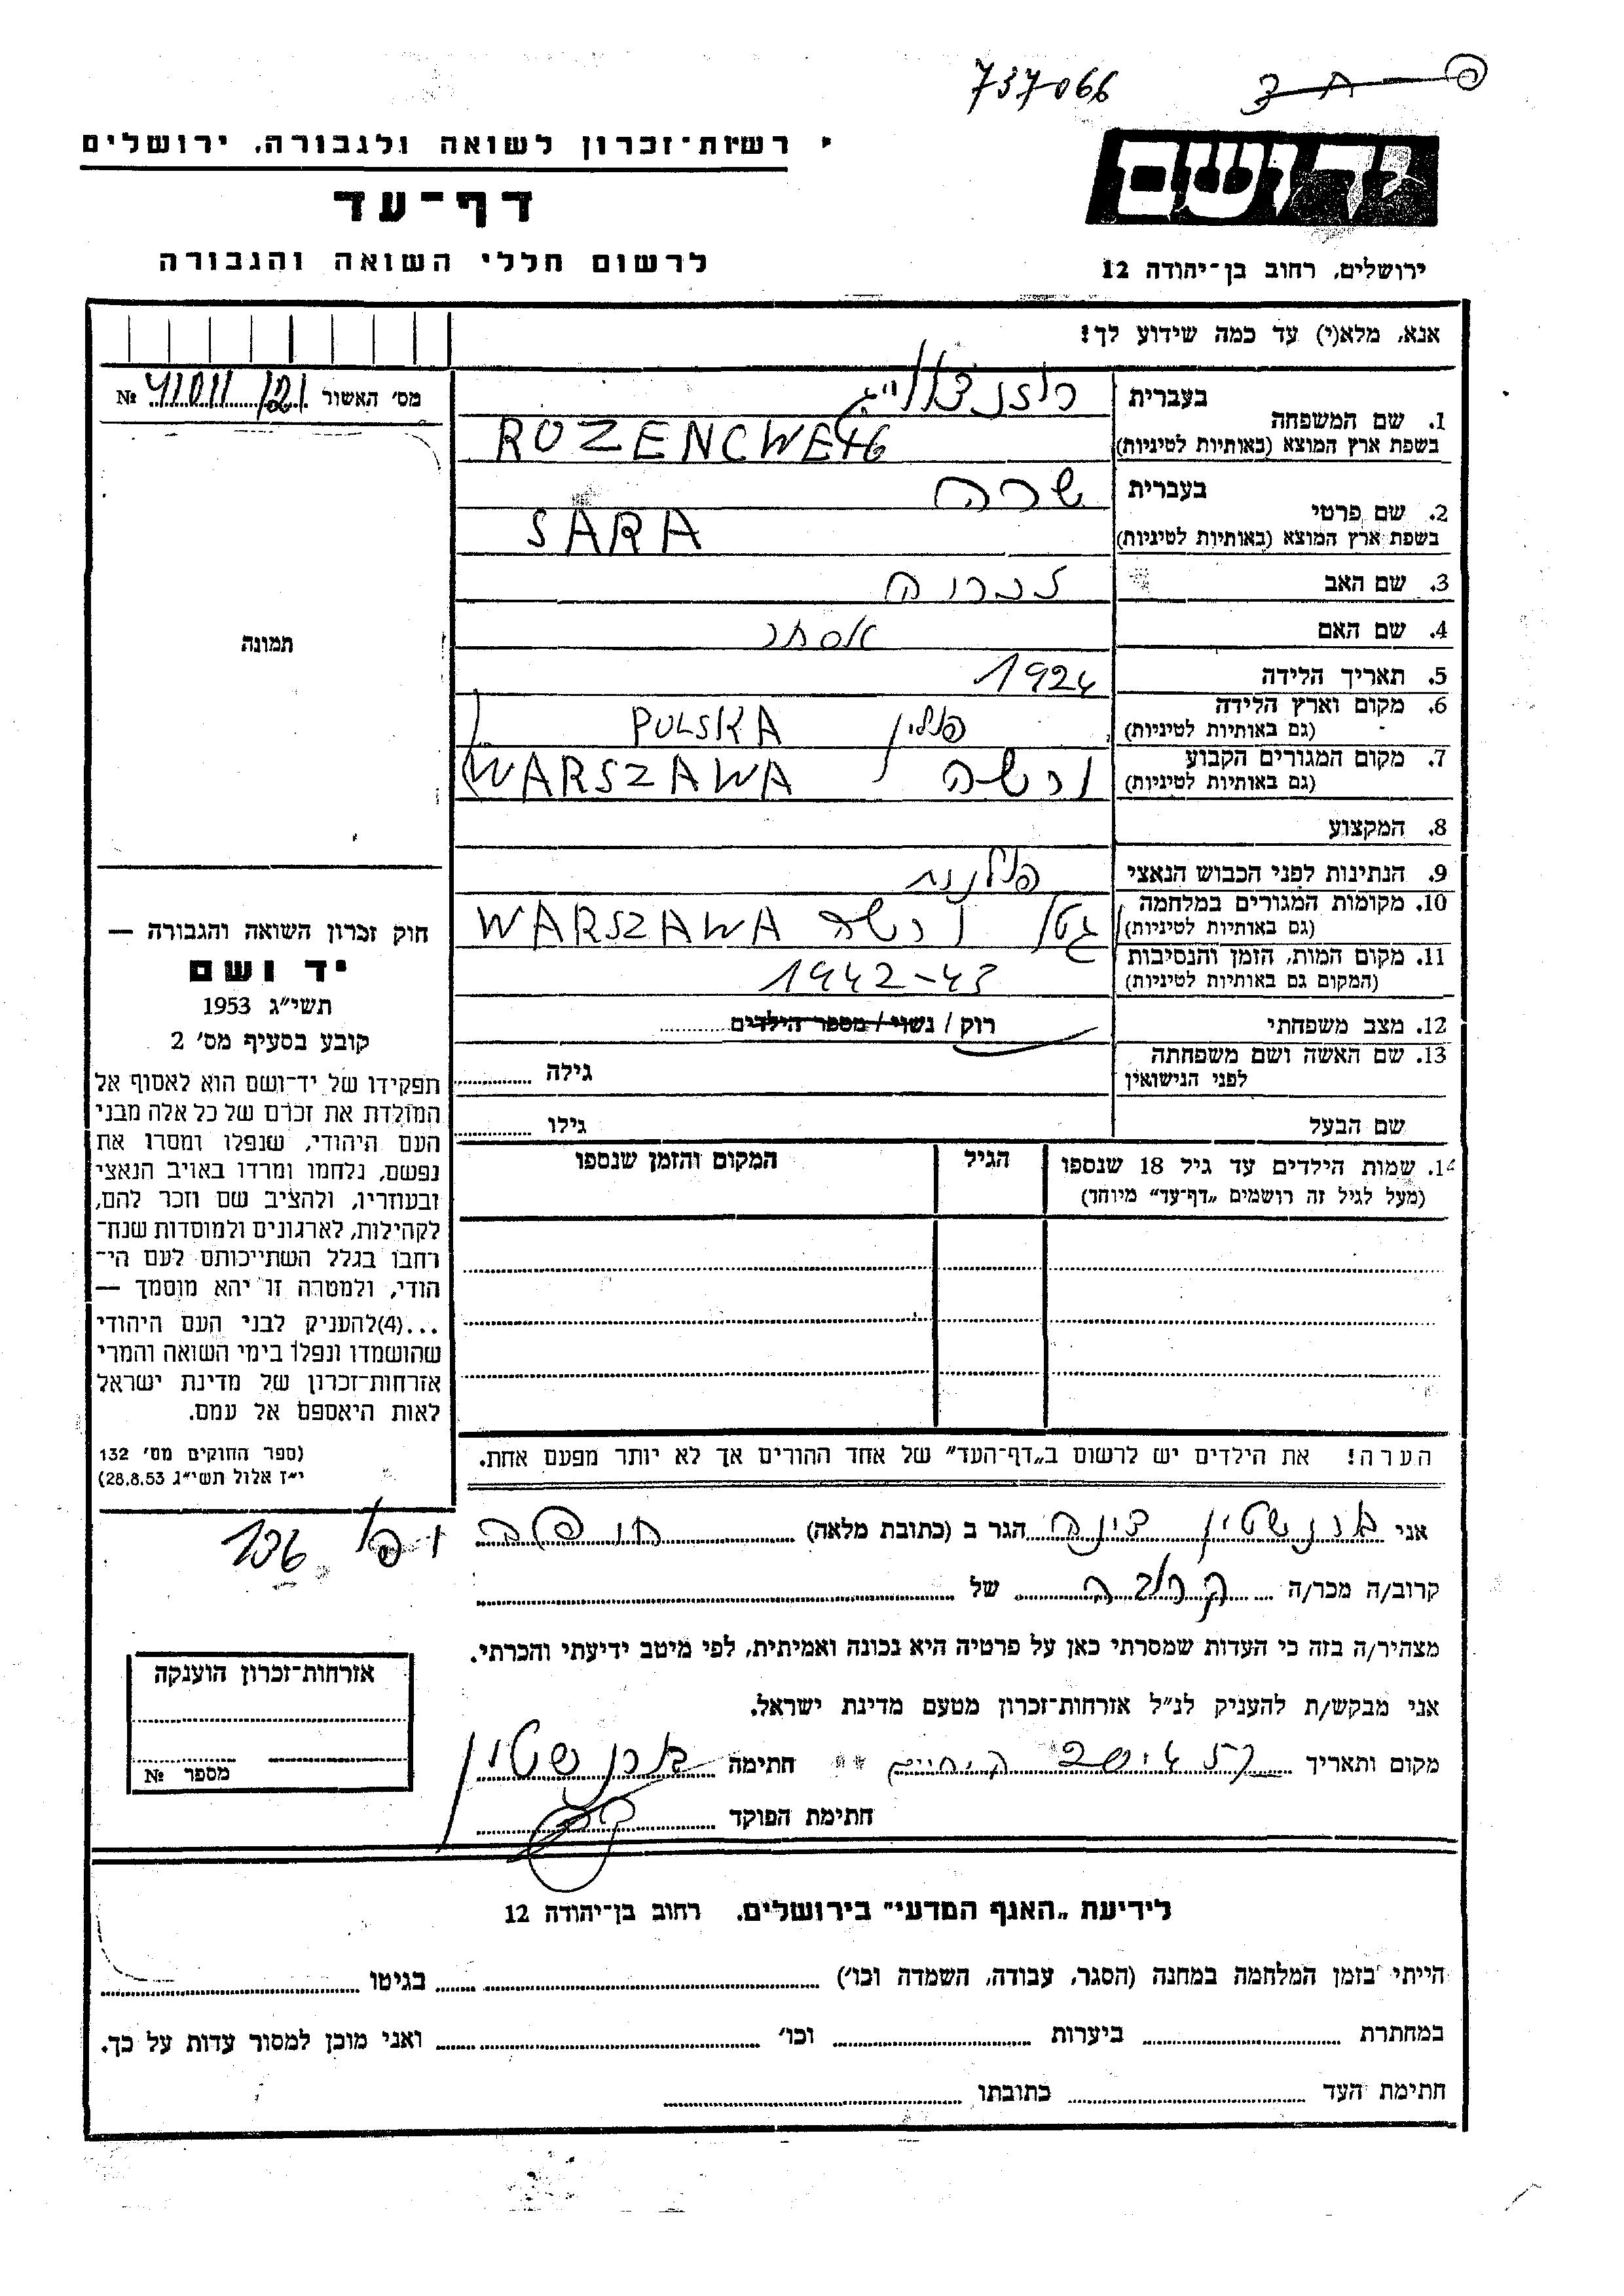 737066
רשות-זכרון לשואה ולגבורה, ירושלים
דף-עד
לרשום חללי השואה והגבורה
יד ושם
ירושלים, רחוב בן-יהודה 12
אנא, מלא(י) עד כמה שידוע לך!
מס׳ האשור № 41011/121
1. שם המשפחה בעברית רוזנצווייג
בשפת ארץ המוצא (באותיות לטיניות) ROZENCWEIG
2. שם פרטי בעברית שרה
בשפת ארץ המוצא (באותיות לטיניות) SARA
3. שם האב
4. שם האם אסתר
5. תאריך הלידה 1924
6. מקום וארץ הלידה (גם באותיות לטיניות) פולין POLSKA
7. מקום המגורים הקבוע (גם באותיות לטיניות) ורשה WARSZAWA
8. המקצוע
9. הנתינות לפני הכבוש הנאצי פולנית
10. מקומות המגורים במלחמה (גם באותיות לטיניות) גטו ורשה WARSZAWA
11. מקום המות, הזמן והנסיבות (המקום גם באותיות לטיניות) 1942-43
12. מצב משפחתי רוק / נשוי / מספר הילדים
13. שם האשה ושם משפחתה לפני הנישואין גילה
שם הבעל גילו
14. שמות הילדים עד גיל 18 שנספו (מעל לגיל זה רושמים „דף-עד” מיוחד) הגיל המקום והזמן שנספו
תמונה
חוק זכרון השואה והגבורה —
יד ושם
תשי״ג 1953
קובע בסעיף מס׳ 2
תפקידו של יד-ושם הוא לאסוף אל
המולדת את זכרם של כל אלה מבני
העם היהודי, שנפלו ומסרו את
נפשם, נלחמו ומרדו באויב הנאצי
ובעוזריו, ולהציב שם וזכר להם,
לקהילות, לארגונים ולמוסדות שנח-
רחבו בגלל השתייכותם לעם הי-
הודי, ולמטרה זו יהא מוסמך —
...(4)להעניק לבני העם היהודי
שהושמדו ונפלו בימי השואה והמרי
אזרחות-זכרון של מדינת ישראל
לאות היאספם אל עמם.
(ספר החוקים מס׳ 132
י״ז אלול תשי״ג 28.8.53)
הערה! את הילדים יש לרשום ב„דף-העד” של אחד ההורים אך לא יותר מפעם אחת.
אני ברנשטין צינה הגר ב (כתובת מלאה) חופה
136
קרוב/ה מכר/ה קרובה של
מצהיר/ה בזה כי העדות שמסרתי כאן על פרטיה היא נכונה ואמיתית, לפי מיטב ידיעתי והכרתי.
אני מבקש/ת להעניק לנ״ל אזרחות-זכרון מטעם מדינת ישראל.
מקום ותאריך חתימה ברנשטין
חתימת הפוקד
אזרחות-זכרון הוענקה
מספר №
לידיעת „האגף המדעי” בירושלים, רחוב בן-יהודה 12
הייתי בזמן המלחמה במחנה (הסגר, עבודה, השמדה וכו׳) בגיטו
במחתרת ביערות וכו׳ ואני מוכן למסור עדות על כך.
חתימת העד כתובתו